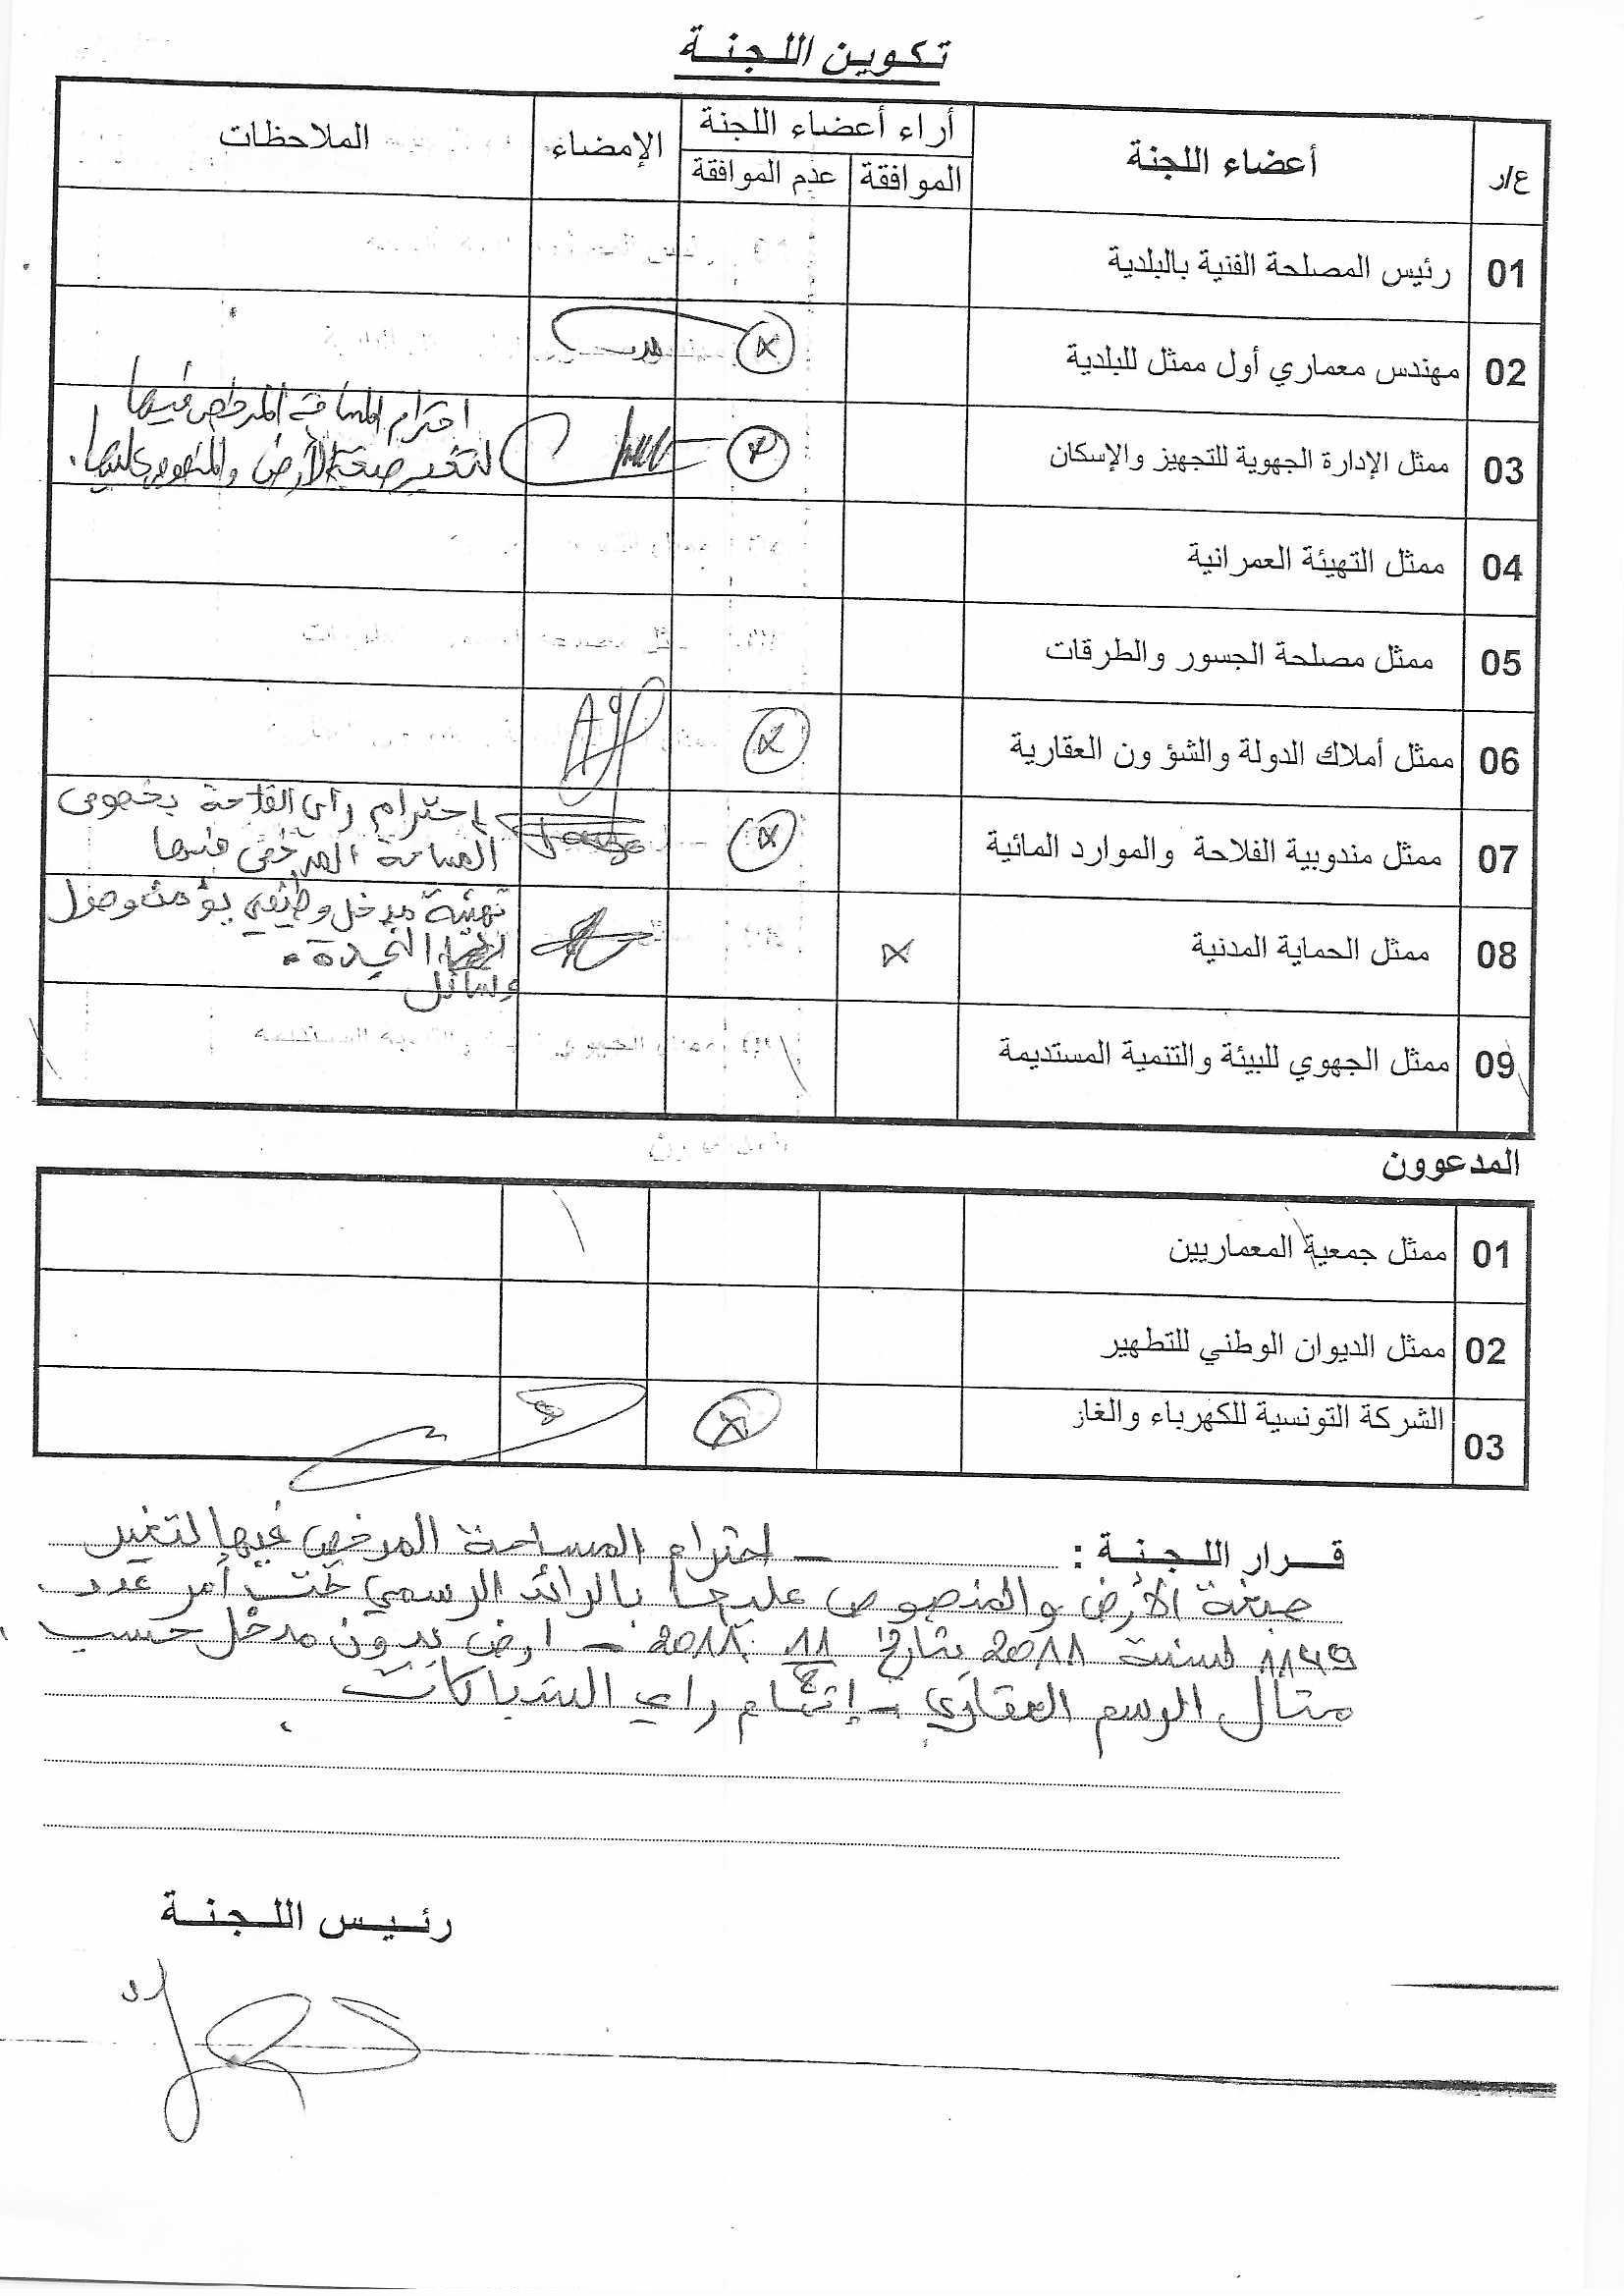 تكوين اللجنة
ع/ر أعضاء اللجنة أراء أعضاء اللجنة الإمضاء الملاحظات
الموافقة عدم الموافقة
01 رئيس المصلحة الفنية بالبلدية
02 مهندس معماري أول ممثل للبلدية
03 ممثل الإدارة الجهوية للتجهيز والإسكان
احترام المساحة المرخص فيها
لتغيير صبغة الأرض والمنصوص عليها.
04 ممثل التهيئة العمرانية
05 ممثل مصلحة الجسور والطرقات
06 ممثل أملاك الدولة والشؤون العقارية
07 ممثل مندوبية الفلاحة والموارد المائية
احترام رأي الفلاحة بخصوص
المساحة المرخص فيها
08 ممثل الحماية المدنية
تهيئة مدخل وظيفي يؤمن وصول
وسائل النجدة.
09 ممثل الجهوي للبيئة والتنمية المستديمة
المدعوون
01 ممثل جمعية المعماريين
02 ممثل الديوان الوطني للتطهير
03 الشركة التونسية للكهرباء والغاز
قرار اللجنة : - احترام المساحة المرخص فيها لتغير
صبغة الأرض والمنصوص عليها بالرائد الرسمي تحت أمر عدد
1149 لسنة 2011 بتاريخ 2011 - ارض بدون مدخل حسب
مثال الرسم العقاري - إتمام راي الشبكات
رئيس اللجنة